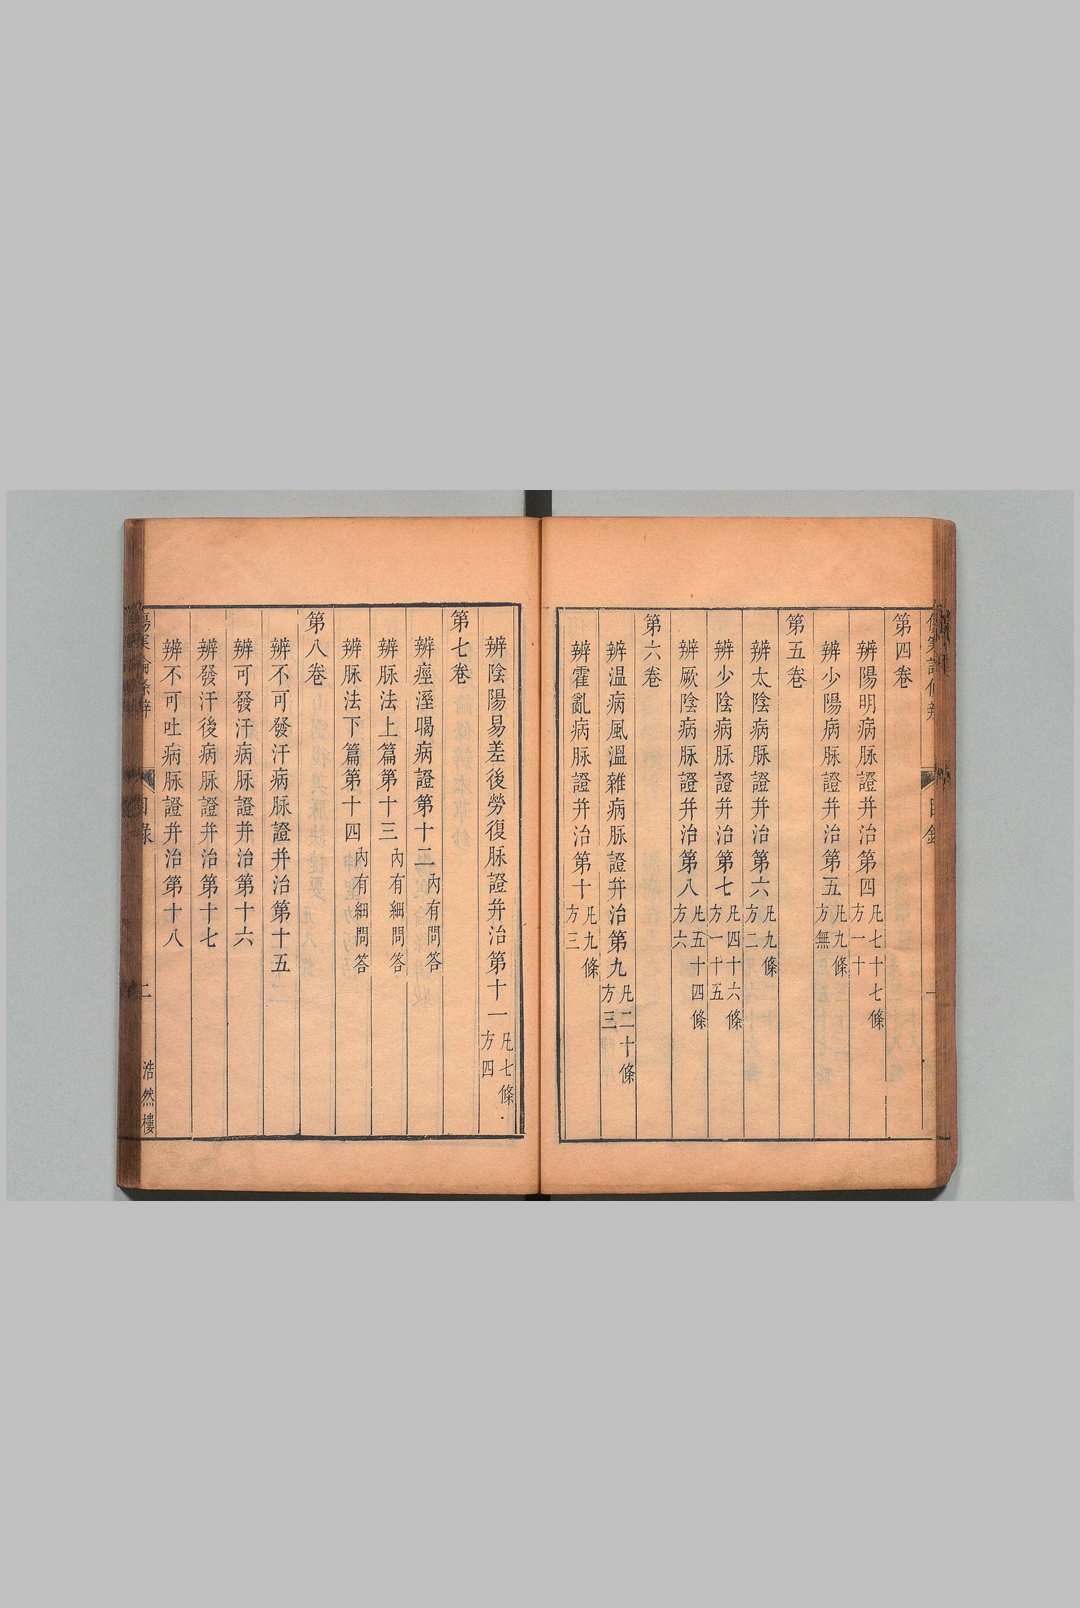 第四卷
辨陽明病脉證并治第四凡七十七條方一十
辨少陽病脉證并治第五凡九條方無
第五卷
辨太陰病脉證并治第六凡九條方二
辨少陰病脉證并治第七凡四十六條方一十五
辨厥陰病脉證并治第八凡五十四條方六
第六卷
辨温病風溫雜病脉證并治第九凡二十條方三
辨霍亂病脉證并治第十凡九條方三
辨陰陽易差後勞復脉證并治第十一凡七條方四
第七卷
辨痙溼暍病證第十二內有問答
辨脉法上篇第十三內有細問答
辨脉法下篇第十四內有細問答
第八卷
辨不可發汗病脉證并治第十五
辨可發汗病脉證并治第十六
辨發汗後病脉證并治第十七
辨不可吐病脉證并治第十八
目錄 二 浩然樓